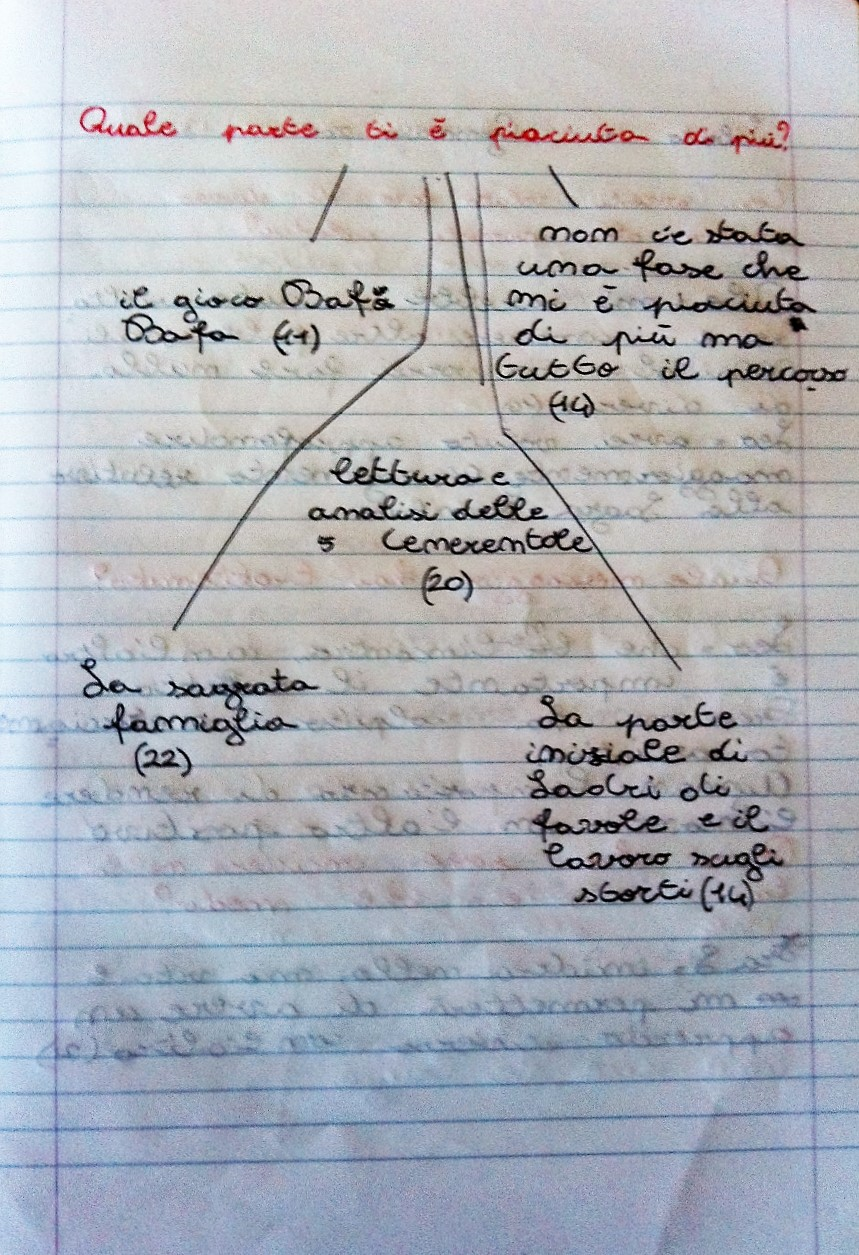 Quale parte ti è piaciuta di più?
il gioco Bafa
Bafa (11)
non c'e stata
una fase che
mi è piaciuta
di più ma
tutto il percorso
(14)
lettura e
analisi delle
5 Cenerentole
(20)
La sagrata
famiglia
(22)
La parte
iniziale di
Ladri di
favole e il
lavoro sugli
storti (14)